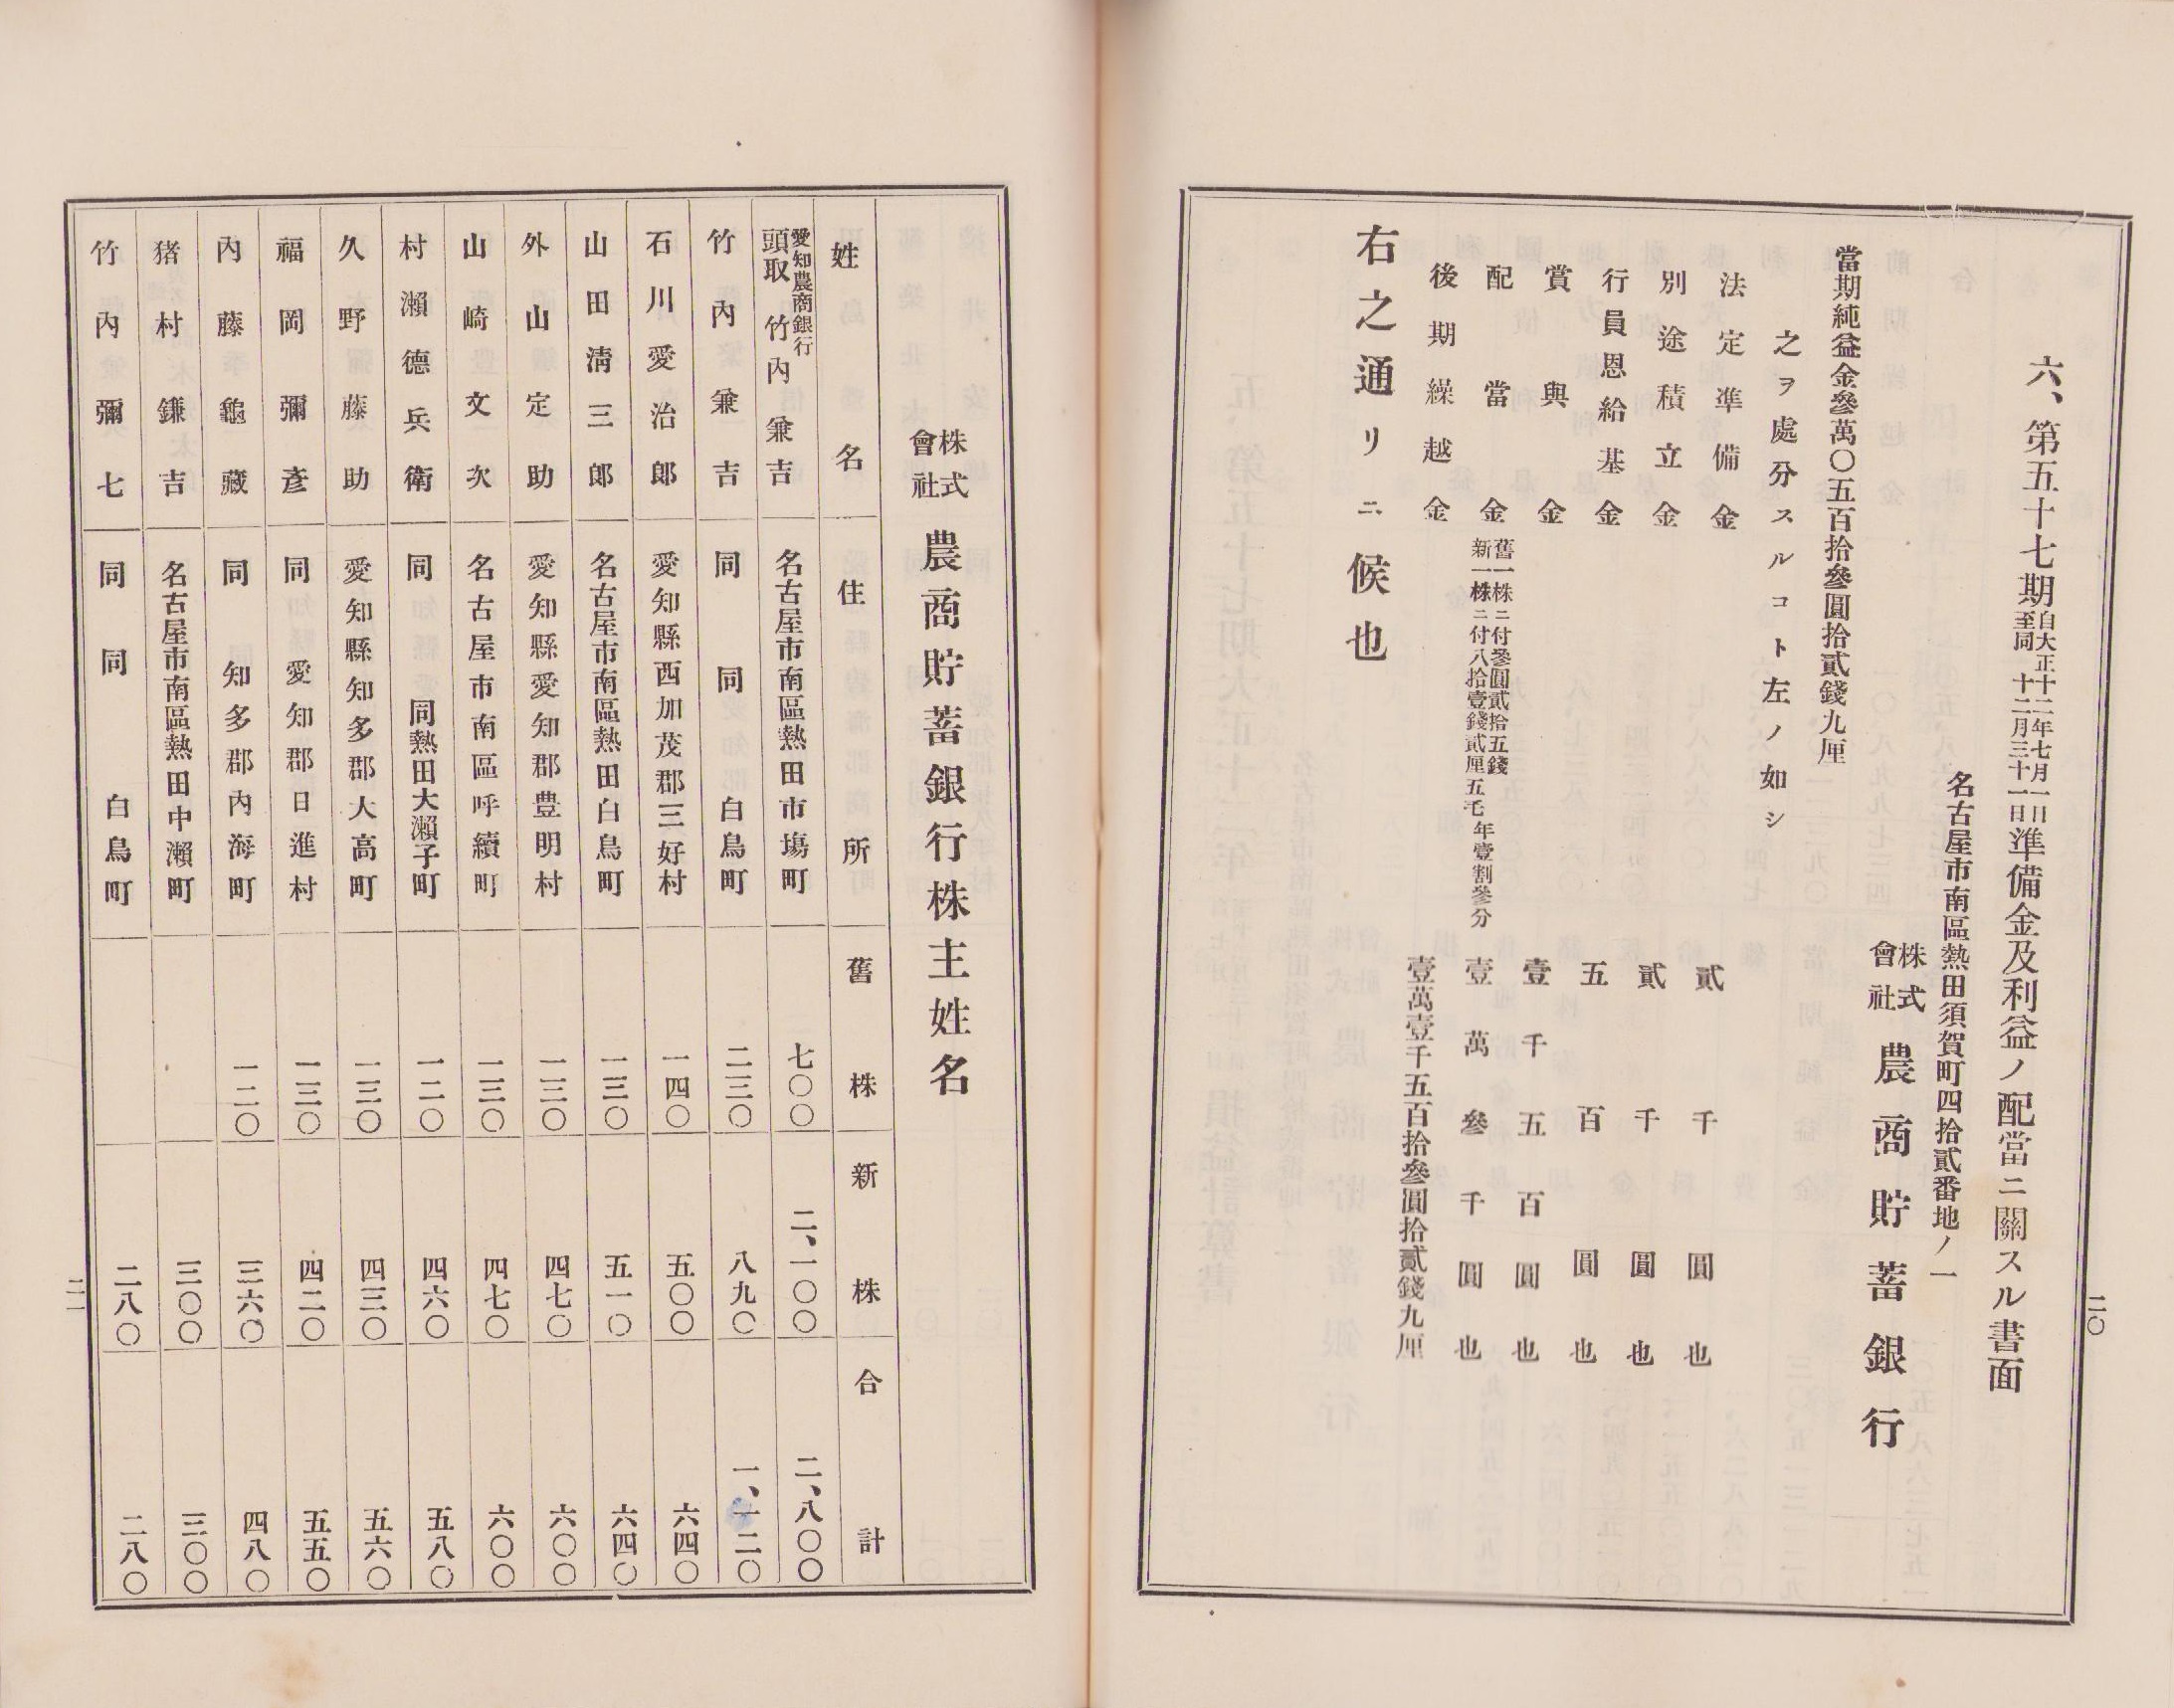 二〇
六、第五十七期自大正十二年七月一日至同十二月三十一日準備金及利益ノ配當ニ關スル書面
名古屋市南區熱田須賀町四拾貳番地ノ一
株式會社 農商貯蓄銀行
當期純益金參萬〇五百拾參圓拾貳錢九厘
之ヲ處分スルコト左ノ如シ
法定準備金 貳千圓也
別途積立金 貳千圓也
行員恩給基金 五百圓也
賞與金 壹千五百圓也
配當金 舊一株ニ付參圓貳拾五錢 新一株ニ付八拾壹錢貳厘五毛 年壹割參分 壹萬參千圓也
後期繰越金 壹萬壹千五百拾參圓拾貳錢九厘
右之通リニ候也
株式會社 農商貯蓄銀行株主姓名
姓名 住所 舊株 新株 合計
愛知農商銀行頭取 竹內兼吉 名古屋市南區熱田市場町 七〇〇 二、一〇〇 二、八〇〇
竹內兼吉 同 同 白鳥町 二三〇 八九〇 一、一二〇
石川愛治郎 愛知縣西加茂郡三好村 一四〇 五〇〇 六四〇
山田淸三郎 名古屋市南區熱田白鳥町 一三〇 五一〇 六四〇
外山定助 愛知縣愛知郡豊明村 一三〇 四七〇 六〇〇
山崎文次 名古屋市南區呼續町 一三〇 四七〇 六〇〇
村瀨德兵衛 同 同熱田大瀨子町 一二〇 四六〇 五八〇
久野彌助 愛知縣知多郡大高町 一三〇 四三〇 五六〇
福岡彌彥 同 愛知郡日進村 一三〇 四二〇 五五〇
內藤龜藏 同 知多郡內海町 一二〇 三六〇 四八〇
猪村鎌吉 名古屋市南區熱田中瀨町 三〇〇 三〇〇
竹內彌七 同 同 白鳥町 二八〇 二八〇
二一